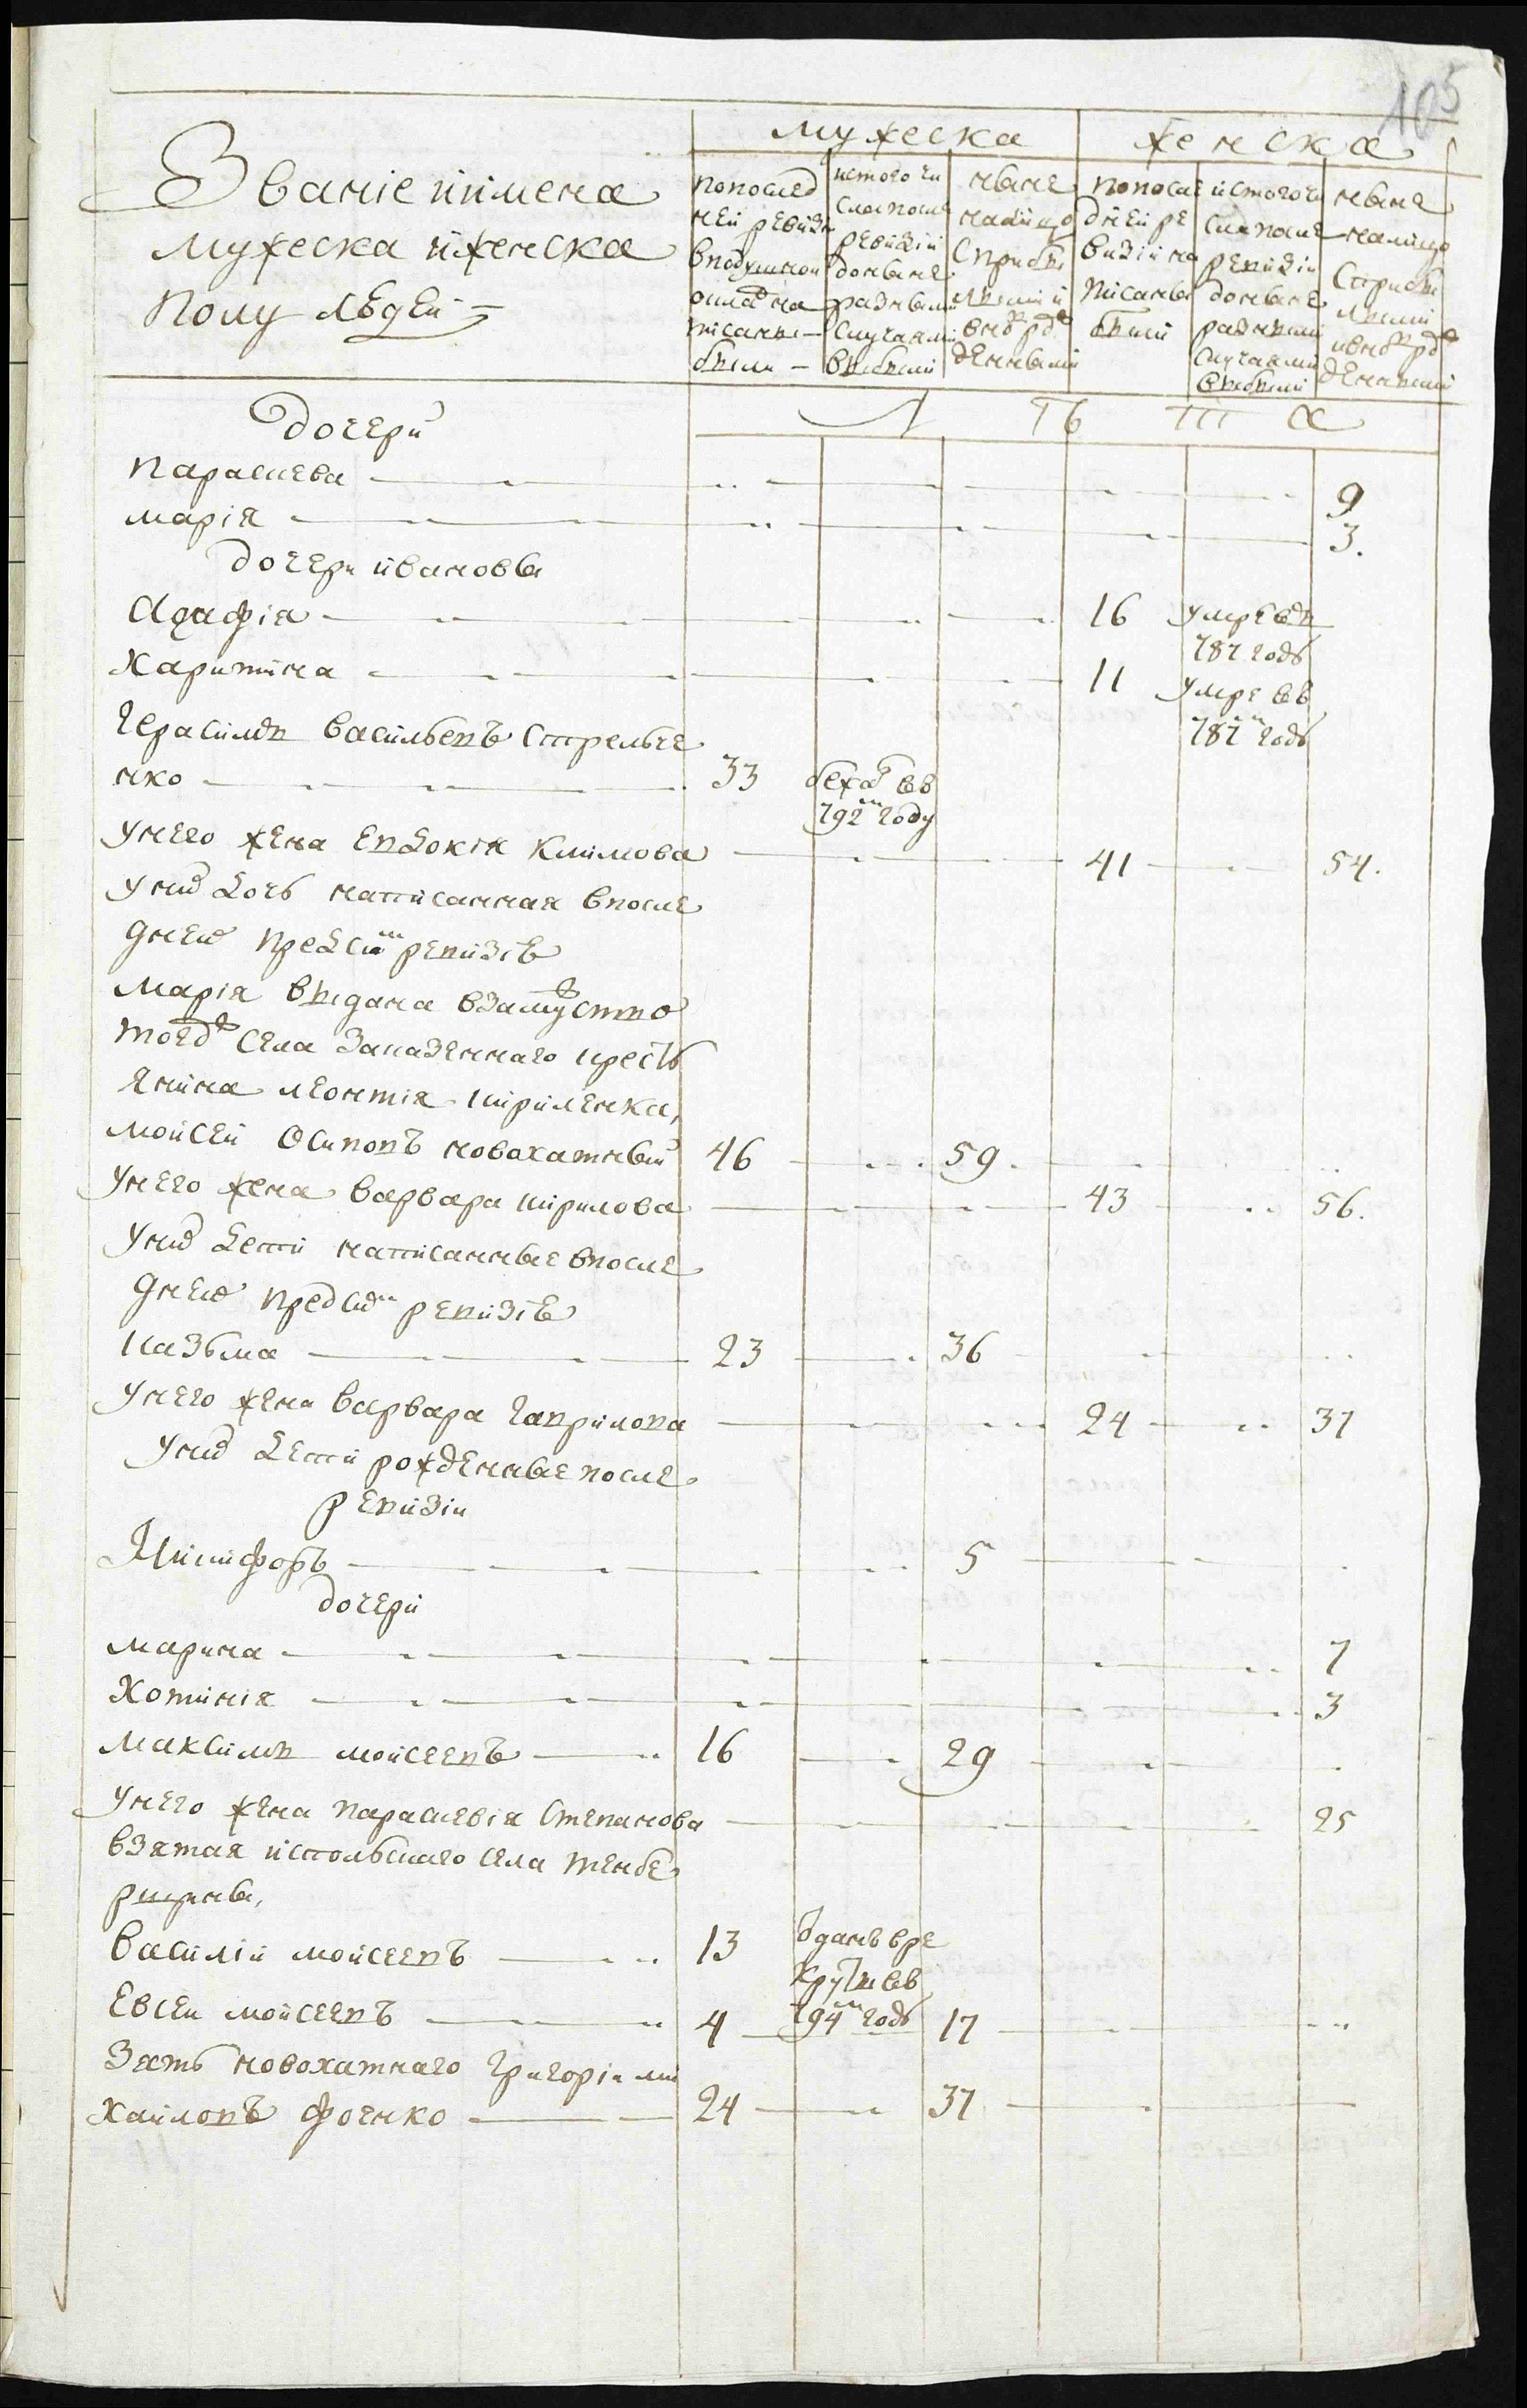 105
Званіе иимена
мужеска иженска
полу людей
мужеска
женска
попослед
ней ревизи
вподушном
окладе на
писаны
были
истого чи
сла после
ревизіи
доныне
разными
случаями
выбыли
ныне
налицо
Сприбы
лыми и
вновь рож
денными
попосле
дней ре
визіи на
писаны
были
истого чи
сла после
ревизіи
доныне
разными
случаями
выбыли
ныне
налицо
Сприбы
лыми
ивновь рож
денными
Л Ѣ Т А
Дочери
Параскева 9
Марія 3.
Дочери ивановы
Агафія 16 умре въ
787 годѣ
Харитина 11 умре въ
787м годѣ
Герасимъ васильевъ Стрельче
нко 33 бежалъ въ
792м году
унего жена Евдокія Климова 41 54.
уних дочь написанная впосле
дней пред сим ревизіе
Марія выдана взамужество
тогож села Заказенного кресть
янина леонтія кириленка,
Мойсей Осиповъ новохатный 46 59.
унего жена варвара кирилова 43 56.
уних дети написанные впосле
дней пред сим ревизіе
Казьма 23 36
унего жена варвара гаврилова 24 37
уних дети рожденные после
ревизіи
Никифоръ 5
Дочери
Марина 7
Хотинія 3
Максимъ мойсеевъ 16 29
унего жена параскевія Степанова 25
взятая
села
Василій мойсеевъ 13 отданъ вре
круты въ
794м годѣ
Евсей мойсеевъ 4 17
Зять новохатнаго григорій ми
хайловъ фоенко 24 37